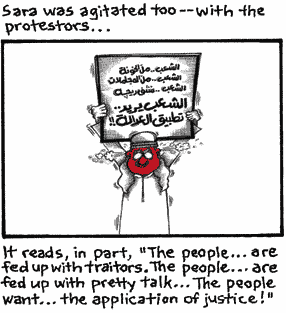 Sara was agitated too -- with the
protestors...
الشعب.. مل الخونة
الشعب.. مل المجاملات
الشعب..
الشعب يريد..
تطبيق العدالة!!
It reads, in part, "The people... are
fed up with traitors. The people... are
fed up with pretty talk... The people
want... the application of justice!"